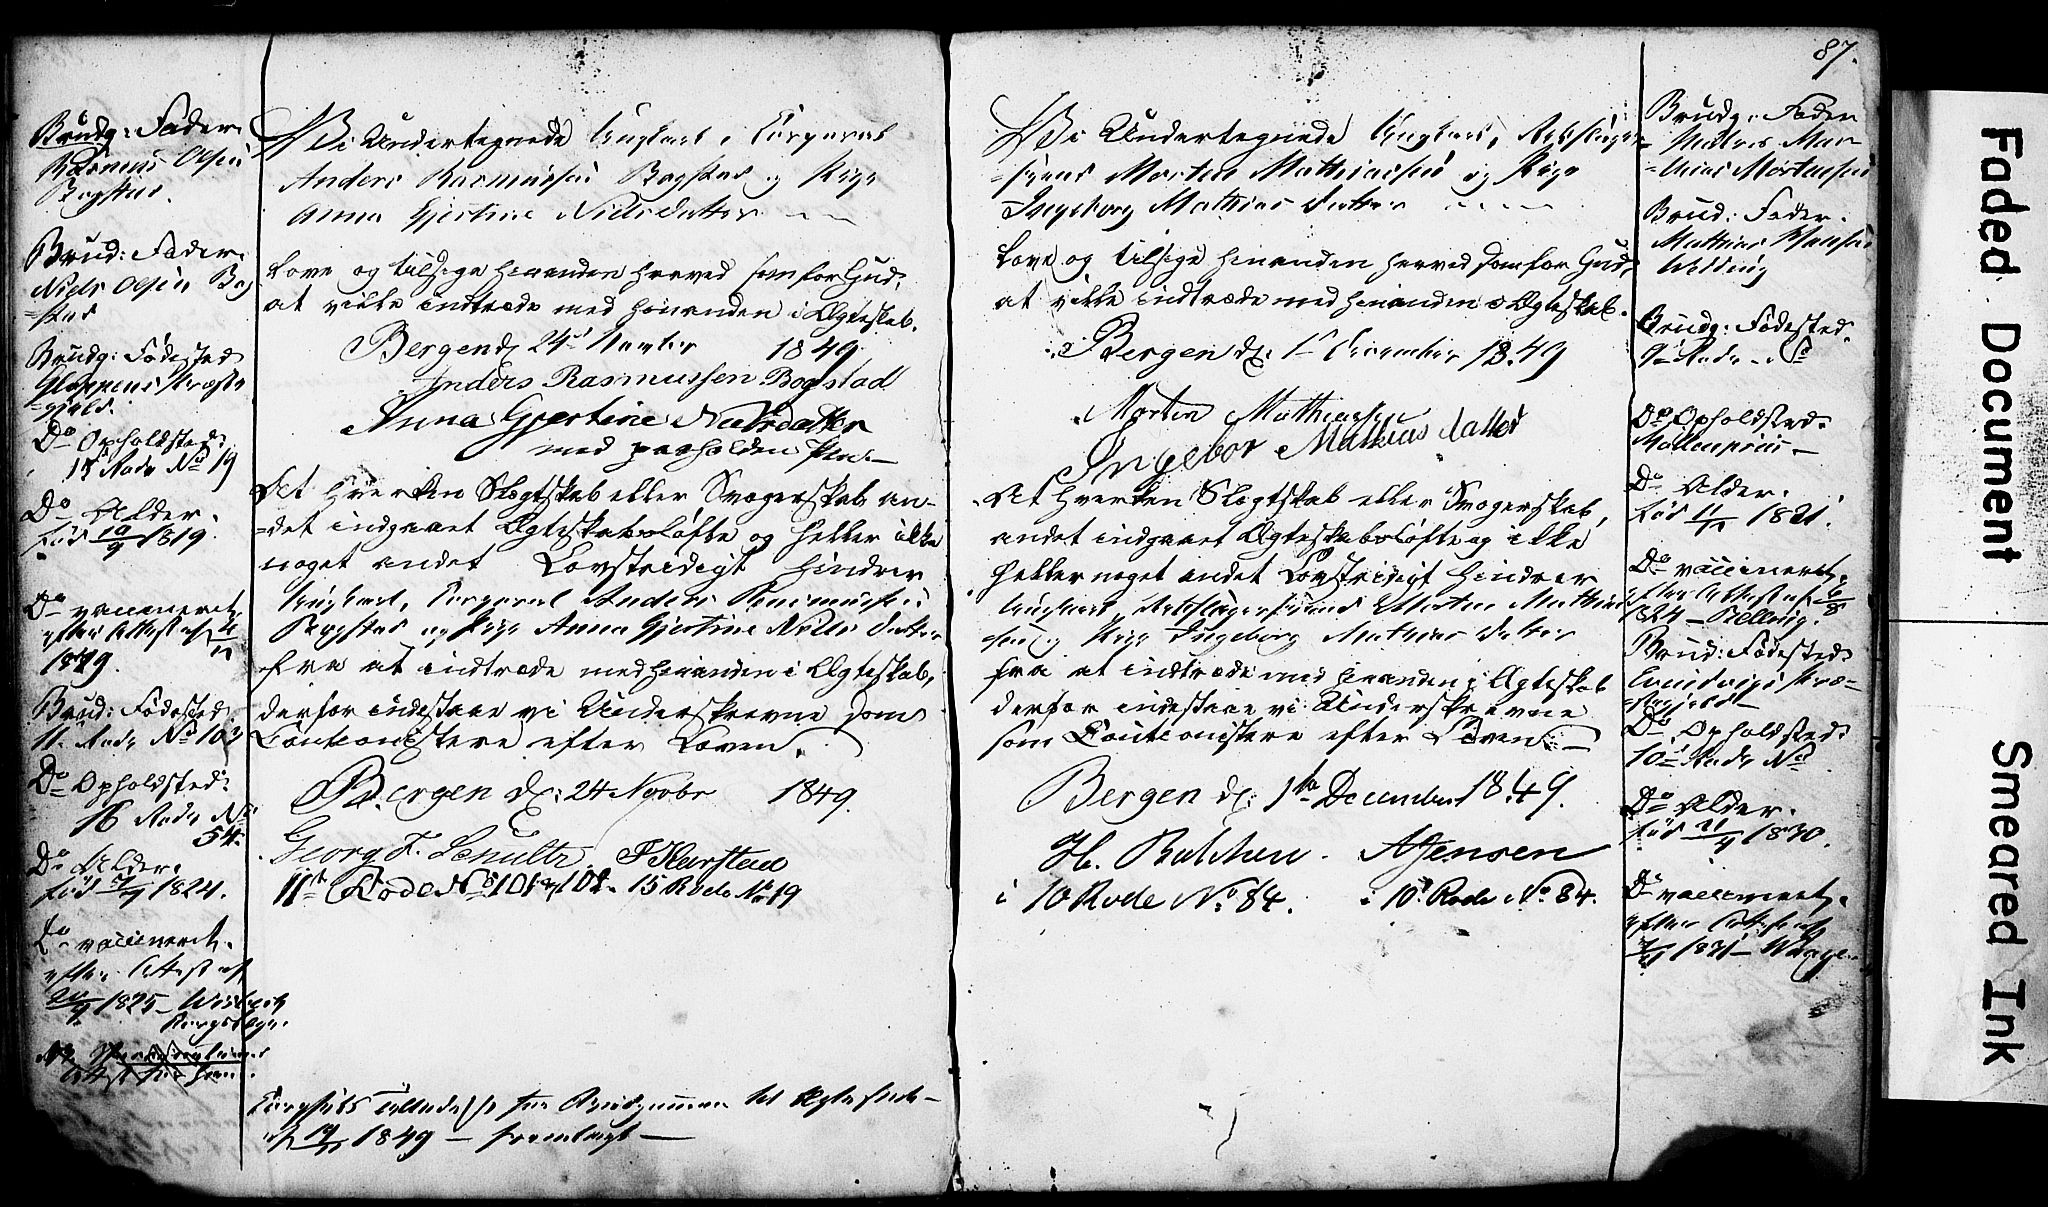 Brudg: Fader.
Rasmus Olsen
Bogstad.
Brud: Fader.
Niels Olsen Bog
=stad
Brudg: Fødested
Gloppens Præste
=gjeld.
Do Opholdsted:
15 Rode No 19
Do Alder.
fød 19/9 1819.
Do vaccineret,
efter Attest af 4/11
1849.
Brud: Fødested
11. Rode No 103
Do Opholdsted:
16 Rode No
54.
Do Alder.
fød 7/9 1824.
Do vaccineret.
efter Attest af
1825 –
Vi Undertegnede Ungkarl, Corporal
Anders Rasmussen Bogstad og Pige
Anna Gjertine Nielsdatter
Love og tilsige hinanden herved som for Gud,
at ville indtræde med hinanden i Ægteskab.
Bergen d. 24 November 1849
Anders Rasmussen Bogstad
Anna Gjertine Nielsdatter
med paaholden Pen.
At hverken Slægtskab eller Svogerskab an-
=det indgaaet Ægteskabsløfte og heller ikke
noget andet Lovstridigt hindrer
Ungkarl, Corporal Anders Rasmussen
Bogstad og Pige Anna Gjertine Niels datter
fra at indtræde med hinanden i Ægteskab,
derfor indestaae vi Underskrevne som
Cautionister efter Loven.
Bergen d: 24 Novbr 1849.
Georg F. Schultz. F Harstad
11te Rode No 101 & 102. 15 Rode No 19
Tilladelse for Brudgommen til Ægteskab
af 19/11 1849 – fremlagt –
87.
Vi Undertegnede Ungkarl,
=svend Morten Mathiassen og Pige
Ingeborg Mathias datter
Love og tilsige hinanden herved som for Gud,
at ville indtræde med hinanden i Ægteskab.
Bergen d: 1ste December 1849
Morten Mathiassen
Ingebor Mathias datter
At hverken Slægtskab eller Svogerskab,
andet indgaaet Ægteskabsløfte og ikke
heller noget andet Lovstridigt hindrer
Ungkarl, Morten Mathias
sen og Pige Ingeborg Mathias datter
fra at indtræde med hinanden i Ægteskab
derfor indestaae vi Underskrevne
som Cautionister efter Loven. –
Bergen d: 1ste December 1849.
H. AJensen
i 10 Rode No 84. i 10 Rode No 84.
Brudg: Fader
Mortensen
Brud: Fader.
Mathias Hansen
Welding
Brudg: Fødested.
9 Rode No
Do Opholdsted:
Do Alder.
fød 11/1 1821.
Do vaccineret,
efter Attest af 6/8
1824 –
Brud: Fødested:
Lindaas Præ=
stegjeld
Do Opholdsted:
10 Rode No
Do Alder.
fød 21/4 1830.
Do vaccineret.
efter Attest af
1831 –
Faded Document
Smeared Ink